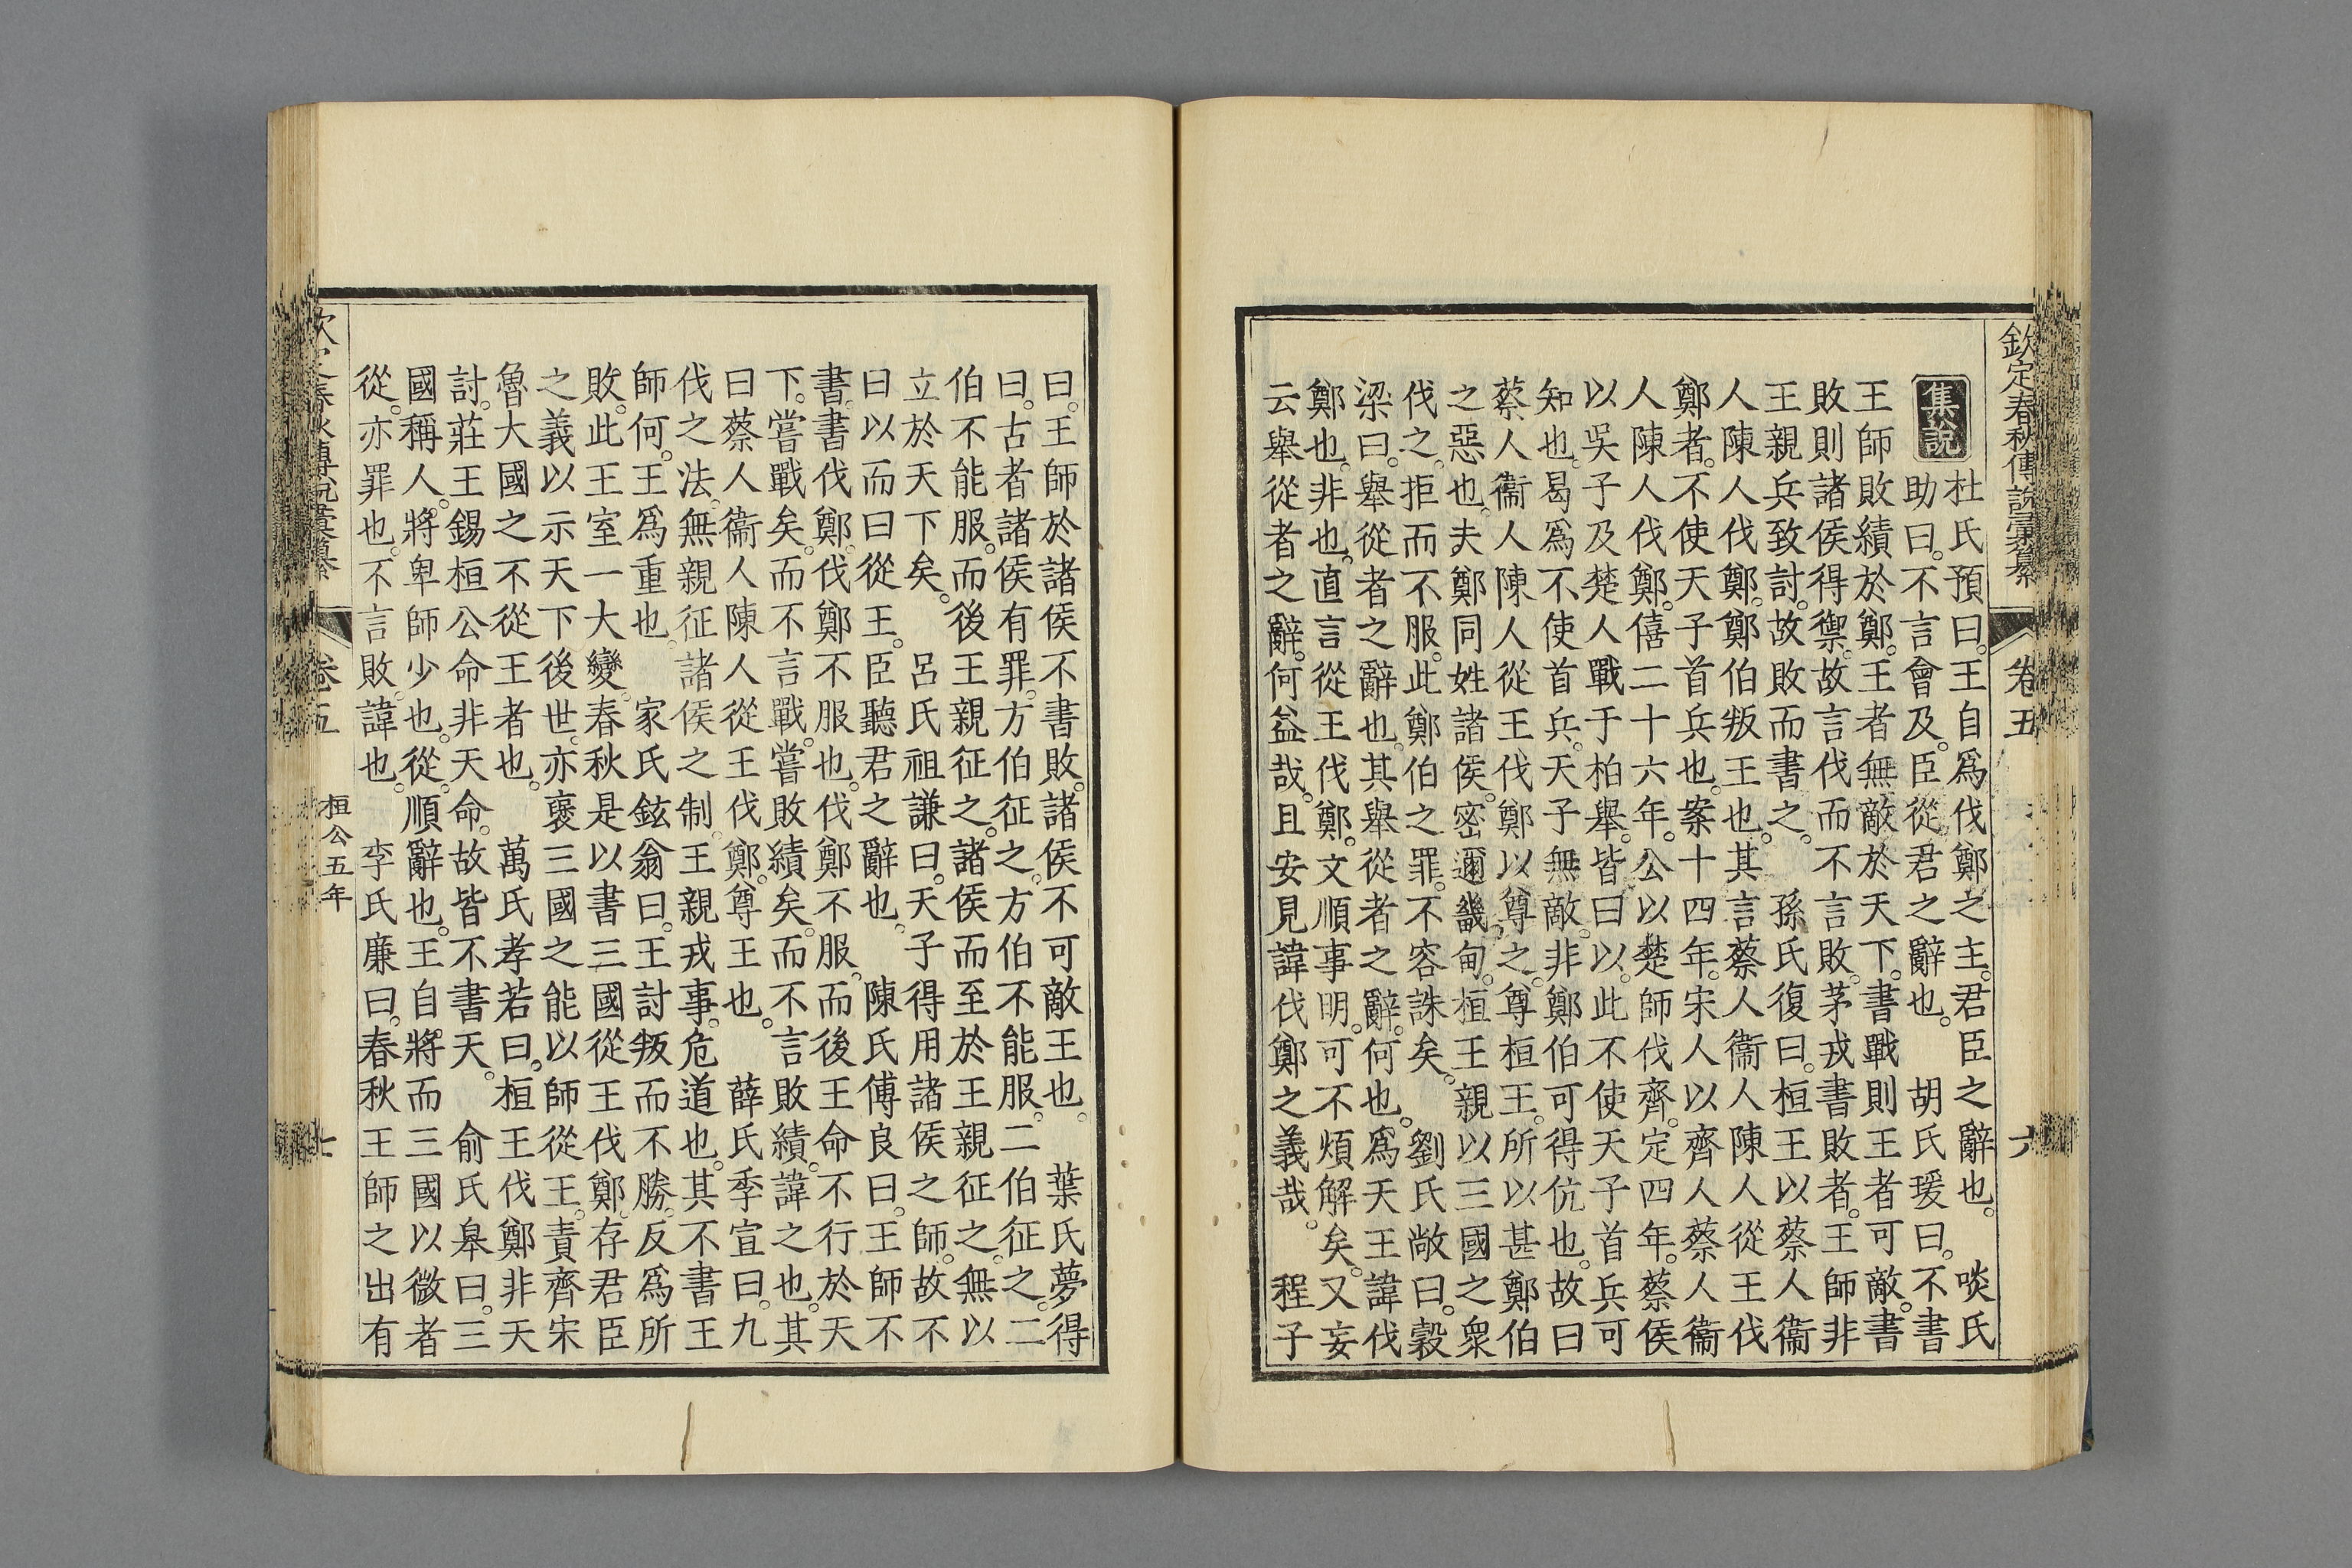 欽定春秋傳說彙纂 卷五 六
集說
杜氏預曰。王自爲伐鄭之主。君臣之辭也。 啖氏
助曰。不言會及。臣從君之辭也。 胡氏瑗曰。不書
王師敗績於鄭。王者無敵於天下。書戰則王者可敵。書
敗則諸侯得禦。故言伐而不言敗。茅戎書敗者。王師非
王親兵致討。故敗而書之。 孫氏復曰。桓王以蔡人衞
人陳人伐鄭。鄭伯叛王也。其言蔡人衞人陳人從王伐
鄭者。不使天子首兵也。案十四年。宋人以齊人蔡人衞
人陳人伐鄭。僖二十六年。公以楚師伐齊。定四年。蔡侯
以吳子及楚人戰于柏舉。皆曰以。此不使天子首兵可
知也。曷爲不使首兵。天子無敵。非鄭伯可得伉也。故曰
蔡人衞人陳人從王伐鄭以尊之。尊桓王。所以甚鄭伯
之惡也。夫鄭同姓諸侯。密邇畿甸。桓王親以三國之衆
伐之。拒而不服。此鄭伯之罪。不容誅矣。 劉氏敞曰。穀
梁曰。舉從者之辭也。其舉從者之辭。何也。爲天王諱伐
鄭也。非也。直言從王伐鄭。文順事明。可不煩解矣。又妄
云舉從者之辭。何益哉。且安見諱伐鄭之義哉。 程子
曰。王師於諸侯不書敗。諸侯不可敵王也。 葉氏夢得
曰。古者諸侯有罪。方伯征之。方伯不能服。二伯征之。二
伯不能服。而後王親征之。諸侯而至於王親征之。無以
立於天下矣。 呂氏祖謙曰。天子得用諸侯之師。故不
曰以而曰從王。臣聽君之辭也。 陳氏傅良曰。王師不
書。書伐鄭。伐鄭不服也。伐鄭不服。而後王命不行於天
下。嘗戰矣。而不言戰。嘗敗績矣。而不言敗績。諱之也。其
曰蔡人衞人陳人從王伐鄭。尊王也。 薛氏季宣曰。九
伐之法。無親征諸侯之制。王親戎事。危道也。其不書王
師何。王爲重也。 家氏鉉翁曰。王討叛而不勝。反爲所
敗。此王室一大變。春秋是以書三國從王伐鄭。存君臣
之義以示天下後世。亦襃三國之能以師從王。責齊宋
魯大國之不從王者也。 萬氏孝若曰。桓王伐鄭非天
討。莊王錫桓公命非天命。故皆不書天。 俞氏皋曰。三
國稱人。將卑師少也。從。順辭也。王自將而三國以微者
從。亦罪也。不言敗。諱也。 李氏廉曰。春秋王師之出有
欽定春秋傳說彙纂 卷五 桓公五年 七